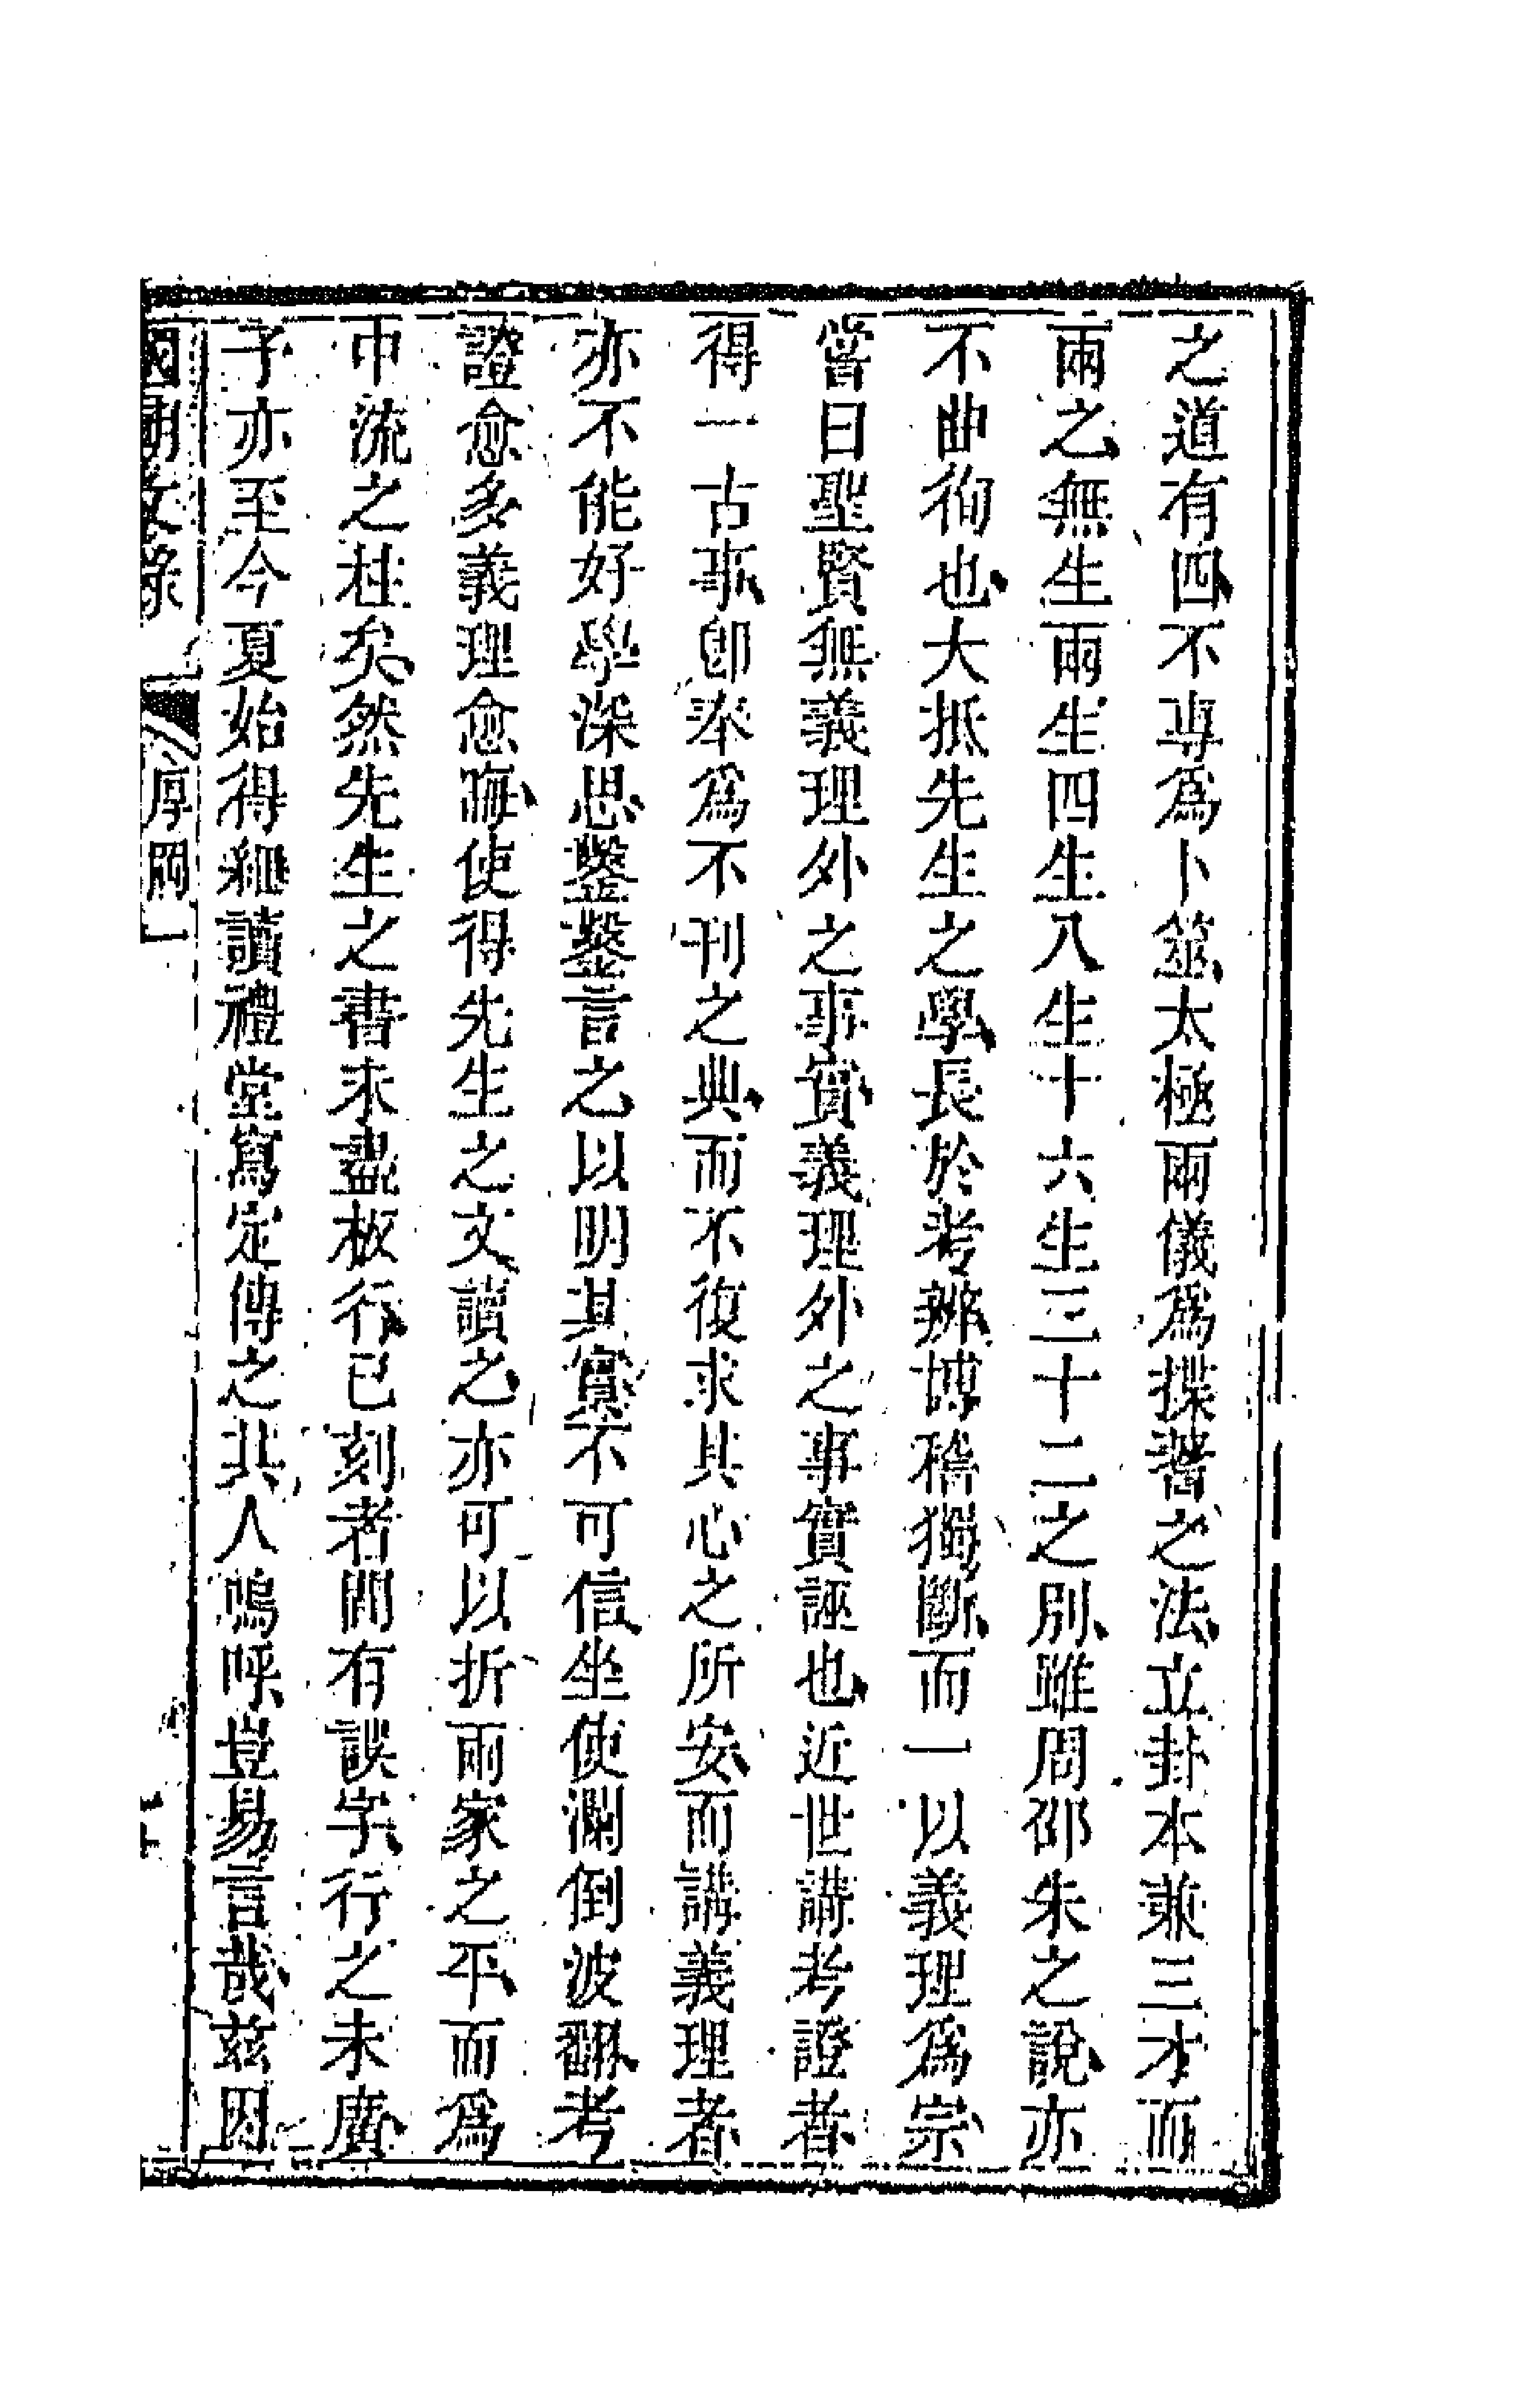 之道有四不專爲卜筮太極兩儀爲揲蓍之法立卦本兼三才而
兩之無生兩生四生八生十六生三十二之別雖周邵朱之說亦
不曲徇也大抵先生之學長於考辨博稽獨斷而一以義理爲宗
嘗曰聖賢無義理外之事實義理外之事實誣也近世講考證者
得一古事卽奉爲不刊之典而不復求其心之所安而講義理者
亦不能好學深思鑿鑿言之以明其實不可信坐使瀾倒波翻考
證愈多義理愈晦使得先生之文讀之亦可以折兩家之平而爲
中流之柱矣然先生之書未盡板行已刻者間有誤字行之未廣
予亦至今夏始得細讀禮堂寫定傳之其人嗚呼豈易言哉茲因
國朝文錄 厚岡一